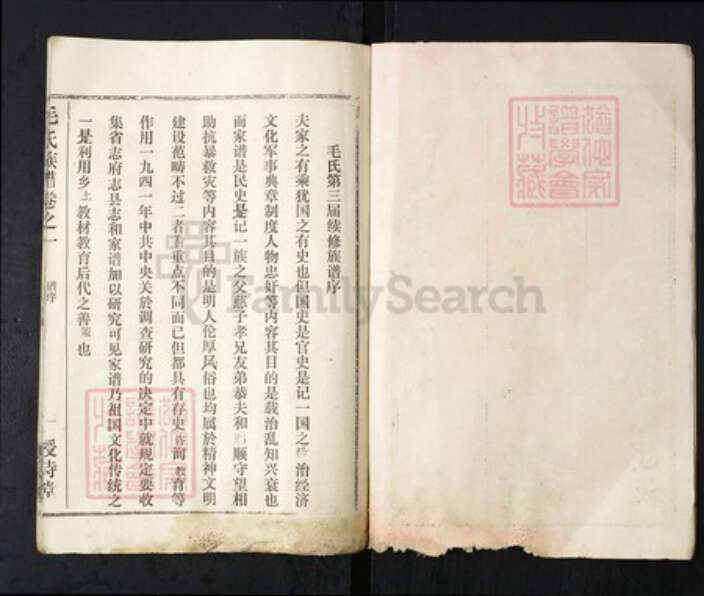 毛氏第三届续修族谱序
夫家之有乘犹国之有史也但国史是官史是记一国之政治经济
文化军事典章制度人物忠奸等内容其目的是载治乱知兴衰也
而家谱是民史是记一族之父慈子孝兄友弟恭夫和顺守望相
助抗暴救灾等内容其目的是明人伦厚风俗也均属於精神文明
建设范畴不过二者着重点不同而已但都具有存史咨询教育等
作用一九四一年中共中央关於调查研究的决定中就规定要收
集省志府志县志和家谱加以研究可见家谱乃祖国文化传统之
一是利用乡土教材教育后代之善策也
毛氏族谱卷之一
谱序
一
授诗堂
FamilySearch